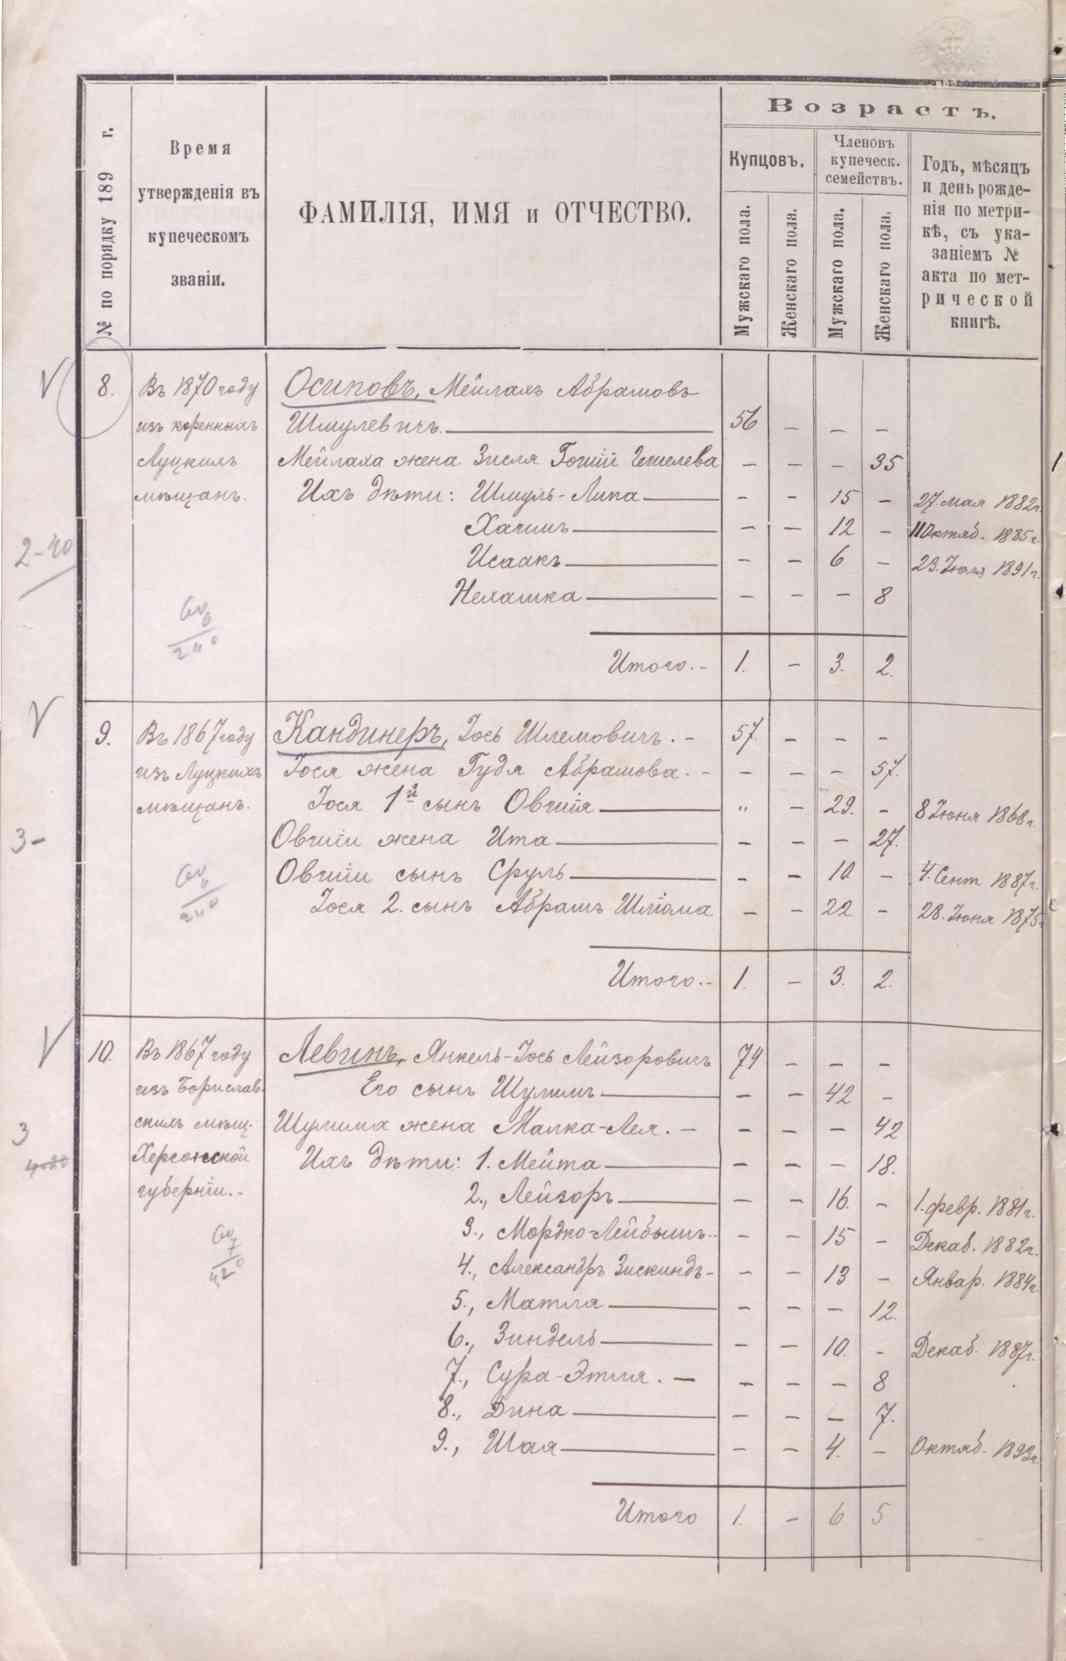 Возрастъ.
№ по порядку 189 г.
Время
утвержденія въ
купеческомъ
званіи.
ФАМИЛІЯ, ИМЯ и ОТЧЕСТВО.
Купцовъ.
Членовъ
купеческ.
семействъ.
Мужскаго пола.
Женскаго пола.
Мужскаго пола.
Женскаго пола.
Годъ, мѣсяцъ
и день рожде-
нія по метри-
кѣ, съ ука-
заніемъ №
акта по мет-
рической
книгѣ.
V 8. Въ 1870 году Осиповъ, Мейлахъ Абрамовъ
изъ коренныхъ Шмулевичъ. 56 – – –
Луцкихъ Мейлаха жена Зисля Гешелева – – – 35
мѣщанъ. Ихъ дѣти: Шмуль-Липа – – 15 – 27. мая 1882г.
Хаимъ – – 12 – 11 Октяб. 1885г.
2-40
Исаакъ – – 6 – 23. Іюля 1891г.
Нехашка – – – 8
Итого. – 1. – 3. 2.
V 9. Въ 1867 году Кандинеръ, Іось Шлемовичъ. – 57 – – –
изъ Луцкихъ Іося жена Гудя Абрамова. – – – – 57.
мѣщанъ. Іося 1й сынъ Овшія „ – 29. – 8 Іюня 1868г.
3-
Овшіи жена Ита – – – 27.
Овшіи сынъ Сруль – – 10 – 4. Сент 1887г.
Іося 2. сынъ Абрамъ Шліома – – 22 – 28. Іюня 1875
Итого. – 1. – 3. 2.
V 10. Въ 1867 году Левинъ, Янкель-Іось Лейзоровичъ 74 – – –
изъ Бориславъ Его сынъ Шулимъ – – 42 –
скихъ мѣщ. Шулима жена Малка-Лея. – – – – 42
3
Херсонской Ихъ дѣти: 1. Мейта – – – 18.
губерніи. – 2., Лейзоръ – – 16. – 1. февр. 1881г.
3., Мордко-Лейбышъ – – 15 – Декаб. 1882г.
4., Александръ Зискиндъ – – – 13 – Январ. 1884г.
5., Матля – – – 12.
6., Зиндель – – 10. – Декаб. 1887г.
7., Сура-Этля. – – – – 8
8., Дина – – – 7.
9., Шая – – 4. – Октяб. 1892г.
Итого 1. – 6 5